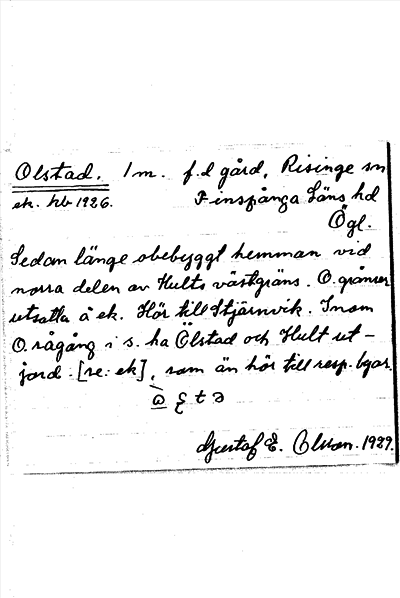 Olstad. 1 m. f.d gård, Risinge sn
ek. hb 1926. Finspånga Läns hd
Ögl.
Sedan länge obebyggt hemman vid
norra delen av Hults västgräns. O.gränser
utsatta å ek. Hör till Stjärnvik. Inom
O. rågång i s. ha Ölstad och Hult ut-
jord. [se: ek], som än hör till resp. byar.
Gustaf E. Olsson. 1929.